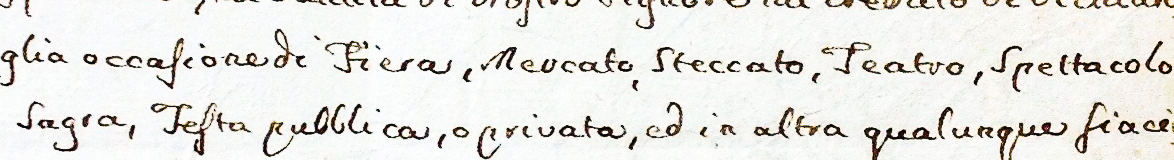 glia occasione di Fiera, Mercato, Steccato, Teatro, Spettacolo
Sagra, Festa pubblica, o privata, ed in altra qualunque siace